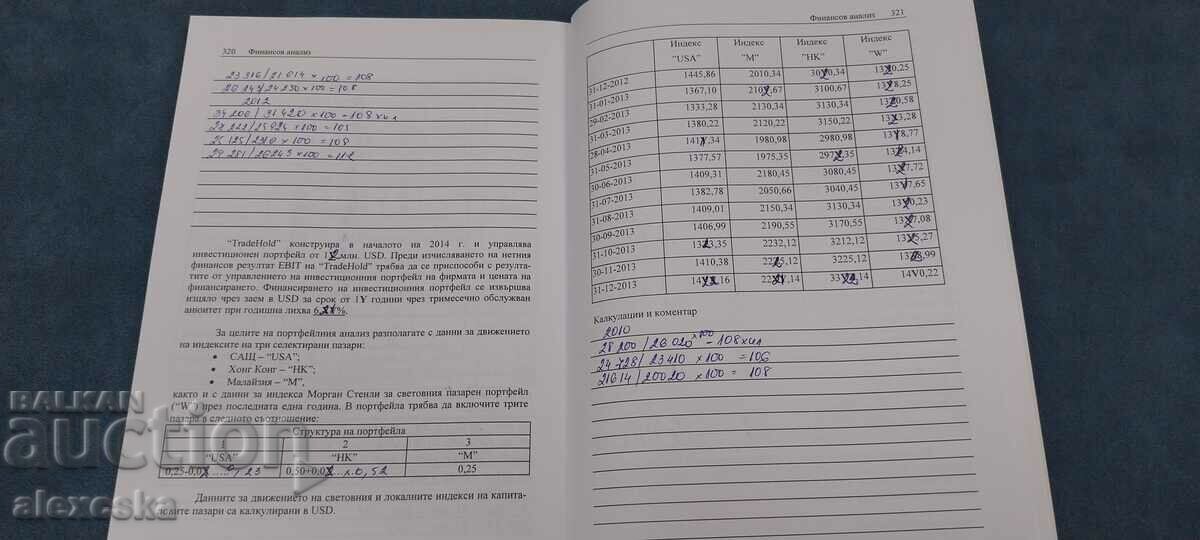 320 Финансов анализ
23 316/21 614 × 100 = 108
× 100 = 108
2012
34 200 / 31 420 × 100 = 108 хил
× 100 = 108
× 100 = 108
29 281/26 243 × 100 = 112
“TradeHold” конструира в началото на 2014 г. и управлява
инвестиционен портфейл от млн. USD. Преди изчисляването на нетния
финансов резултат EBIT на “TradeHold” трябва да се приспособи с резулта-
тите от управлението на инвестиционния портфейл на фирмата и цената на
финансирането. Финансирането на инвестиционния портфейл се извършва
изцяло чрез заем в USD за срок от 1Y години чрез тримесечно обслужван
анюитет при годишна лихва
За целите на портфейлния анализ разполагате с данни за движението
на индексите на три селектирани пазари:
• САЩ – “USA”;
• Хонг Конг – “HK”;
• Малайзия – “M”,
както и с данни за индекса Морган Стенли за световния пазарен портфейл
(“W”) през последната една година. В портфейла трябва да включите трите
пазара в следното съотношение:
Структура на портфейла
1 2 3
“USA” “HK” “M”
0,25-0,0 0,50+0,0 0,52 0,25
Данните за движението на световния и локалните индекси на капита-
ловите пазари са калкулирани в USD.
Финансов анализ 321
Индекс Индекс Индекс Индекс
“USA” “M” “HK” “W”
31-12-2012 1445,86 2010,34
31-01-2013 1367,10 3100,67
29-02-2013 1333,28 2130,34 3130,34
31-03-2013 1380,22 2120,22 3150,22
28-04-2013 1980,98 2980,98
31-05-2013 1377,57 1975,35
30-06-2013 1409,31 2180,45 3080,45
31-07-2013 1382,78 2050,66 3040,45
31-08-2013 1409,01 2150,34 3130,34
30-09-2013 1406,99 2190,55 3170,55
31-10-2013 2232,12 3212,12
30-11-2013 1410,38 3225,12
31-12-2013
Калкулации и коментар
2010
28 200/26 020 × 100 = 108 хил
24 728/23 410 × 100 = 106
21614/20020 × 100 = 108
BALKAN
auction
alexcska